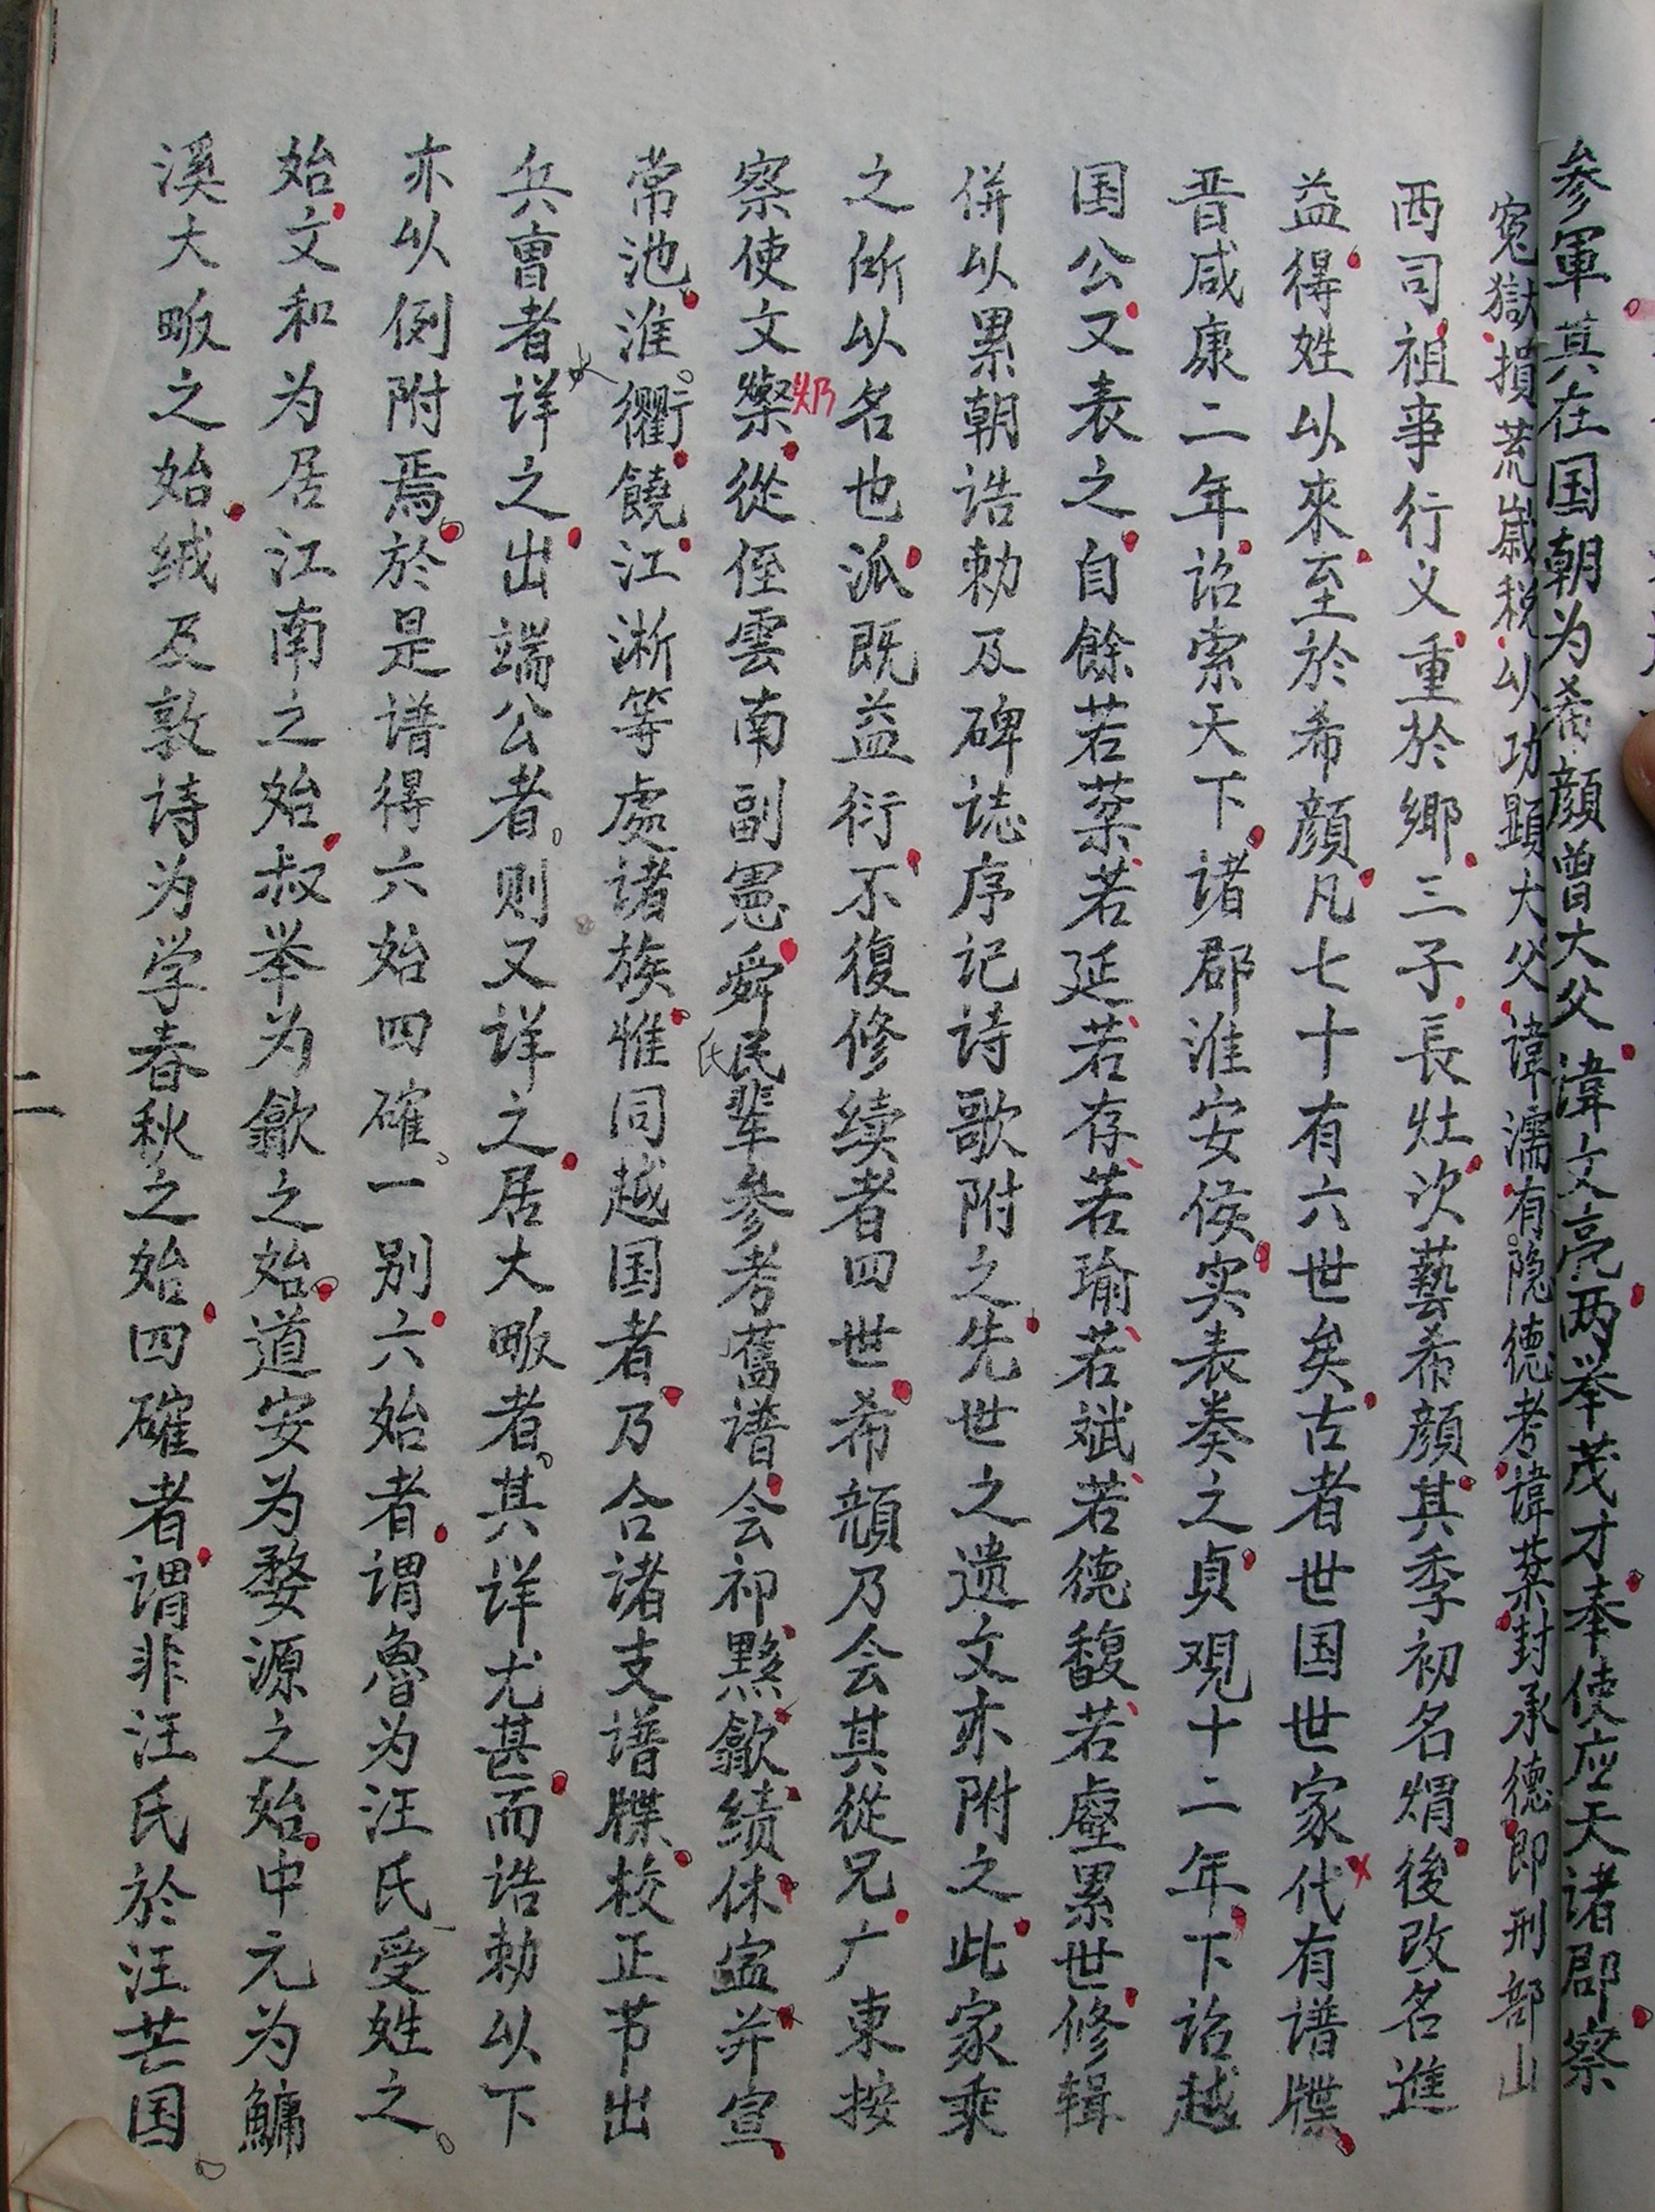 参軍其在国朝为希顔曾大父諱文亮两举茂才奉使应天诸郡察
寃獄損荒歲税以功顕大父諱濡有隐德考諱棻封承德郎刑部山
西司祖事行义重於郷三子長灶次藝希顔其季初名焆後改名進
益得姓以來至於希顔凡七十有六世矣古者世国世家代有谱牒
晋咸康二年诏索天下诸郡淮安侯实表奏之貞观十二年下诏越
国公又表之自餘若蕖若延若存若瑜若斌若德馥若壑累世修辑
併以累朝诰勅及碑誌序记诗歌附之先世之遗文亦附之此家乘
之所以名也派既益衍不復修续者四世希顔乃会其從兄广東按
察使文燦從侄雲南副憲舜民氏輩参考舊谱会祁黟歙绩休寍并宣
常池淮衢饒江淅等處诸族惟同越国者乃合诸支谱牒校正节出
兵曹者详之出端公者则又详之居大畈者其详尤甚而诰勅以下
亦以例附焉於是谱得六始四確一别六始者谓魯为汪氏受姓之
始文和为居江南之始叔举为歙之始道安为婺源之始中元为鱅
溪大畈之始绒及敦诗为学春秋之始四確者谓非汪氏於汪芒国
二